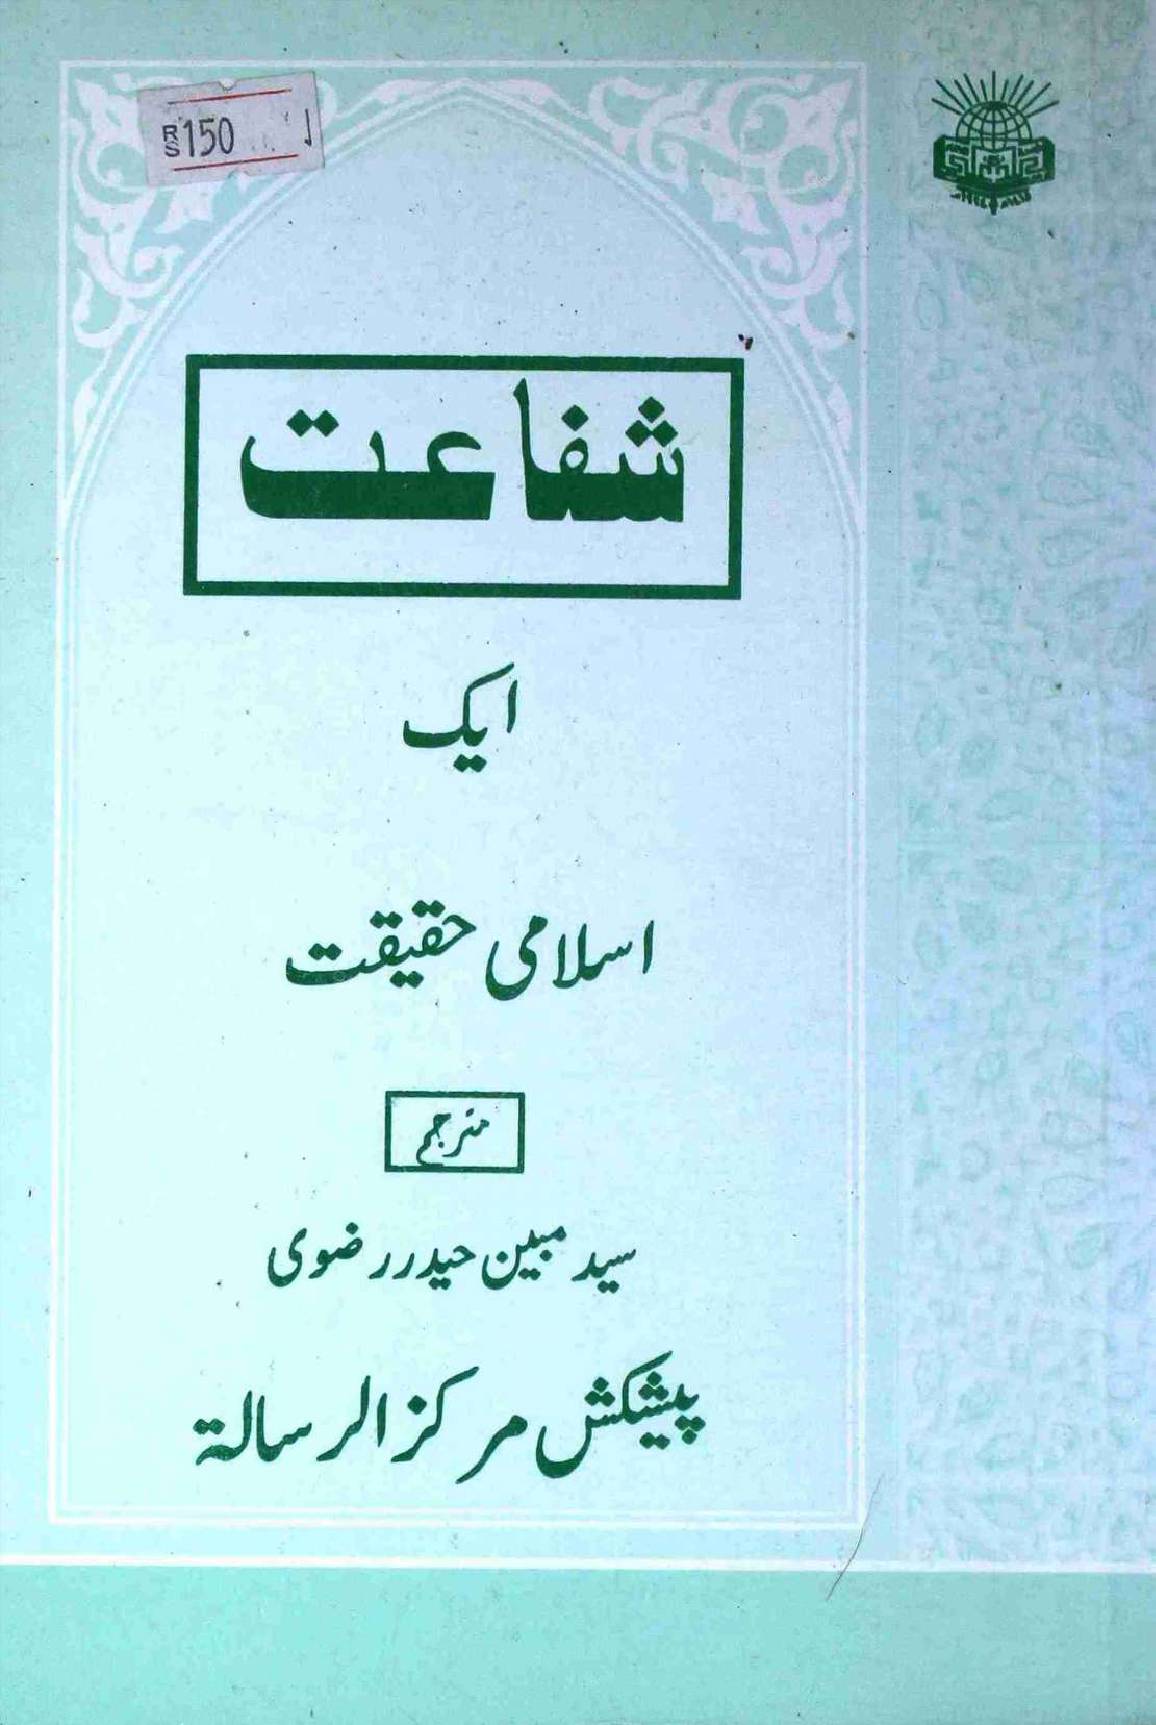 RS 150
شفاعت
ایک
اسلامی حقیقت
مترجم
سید مبین حیدر رضوی
پیشکش مرکز الرسالة